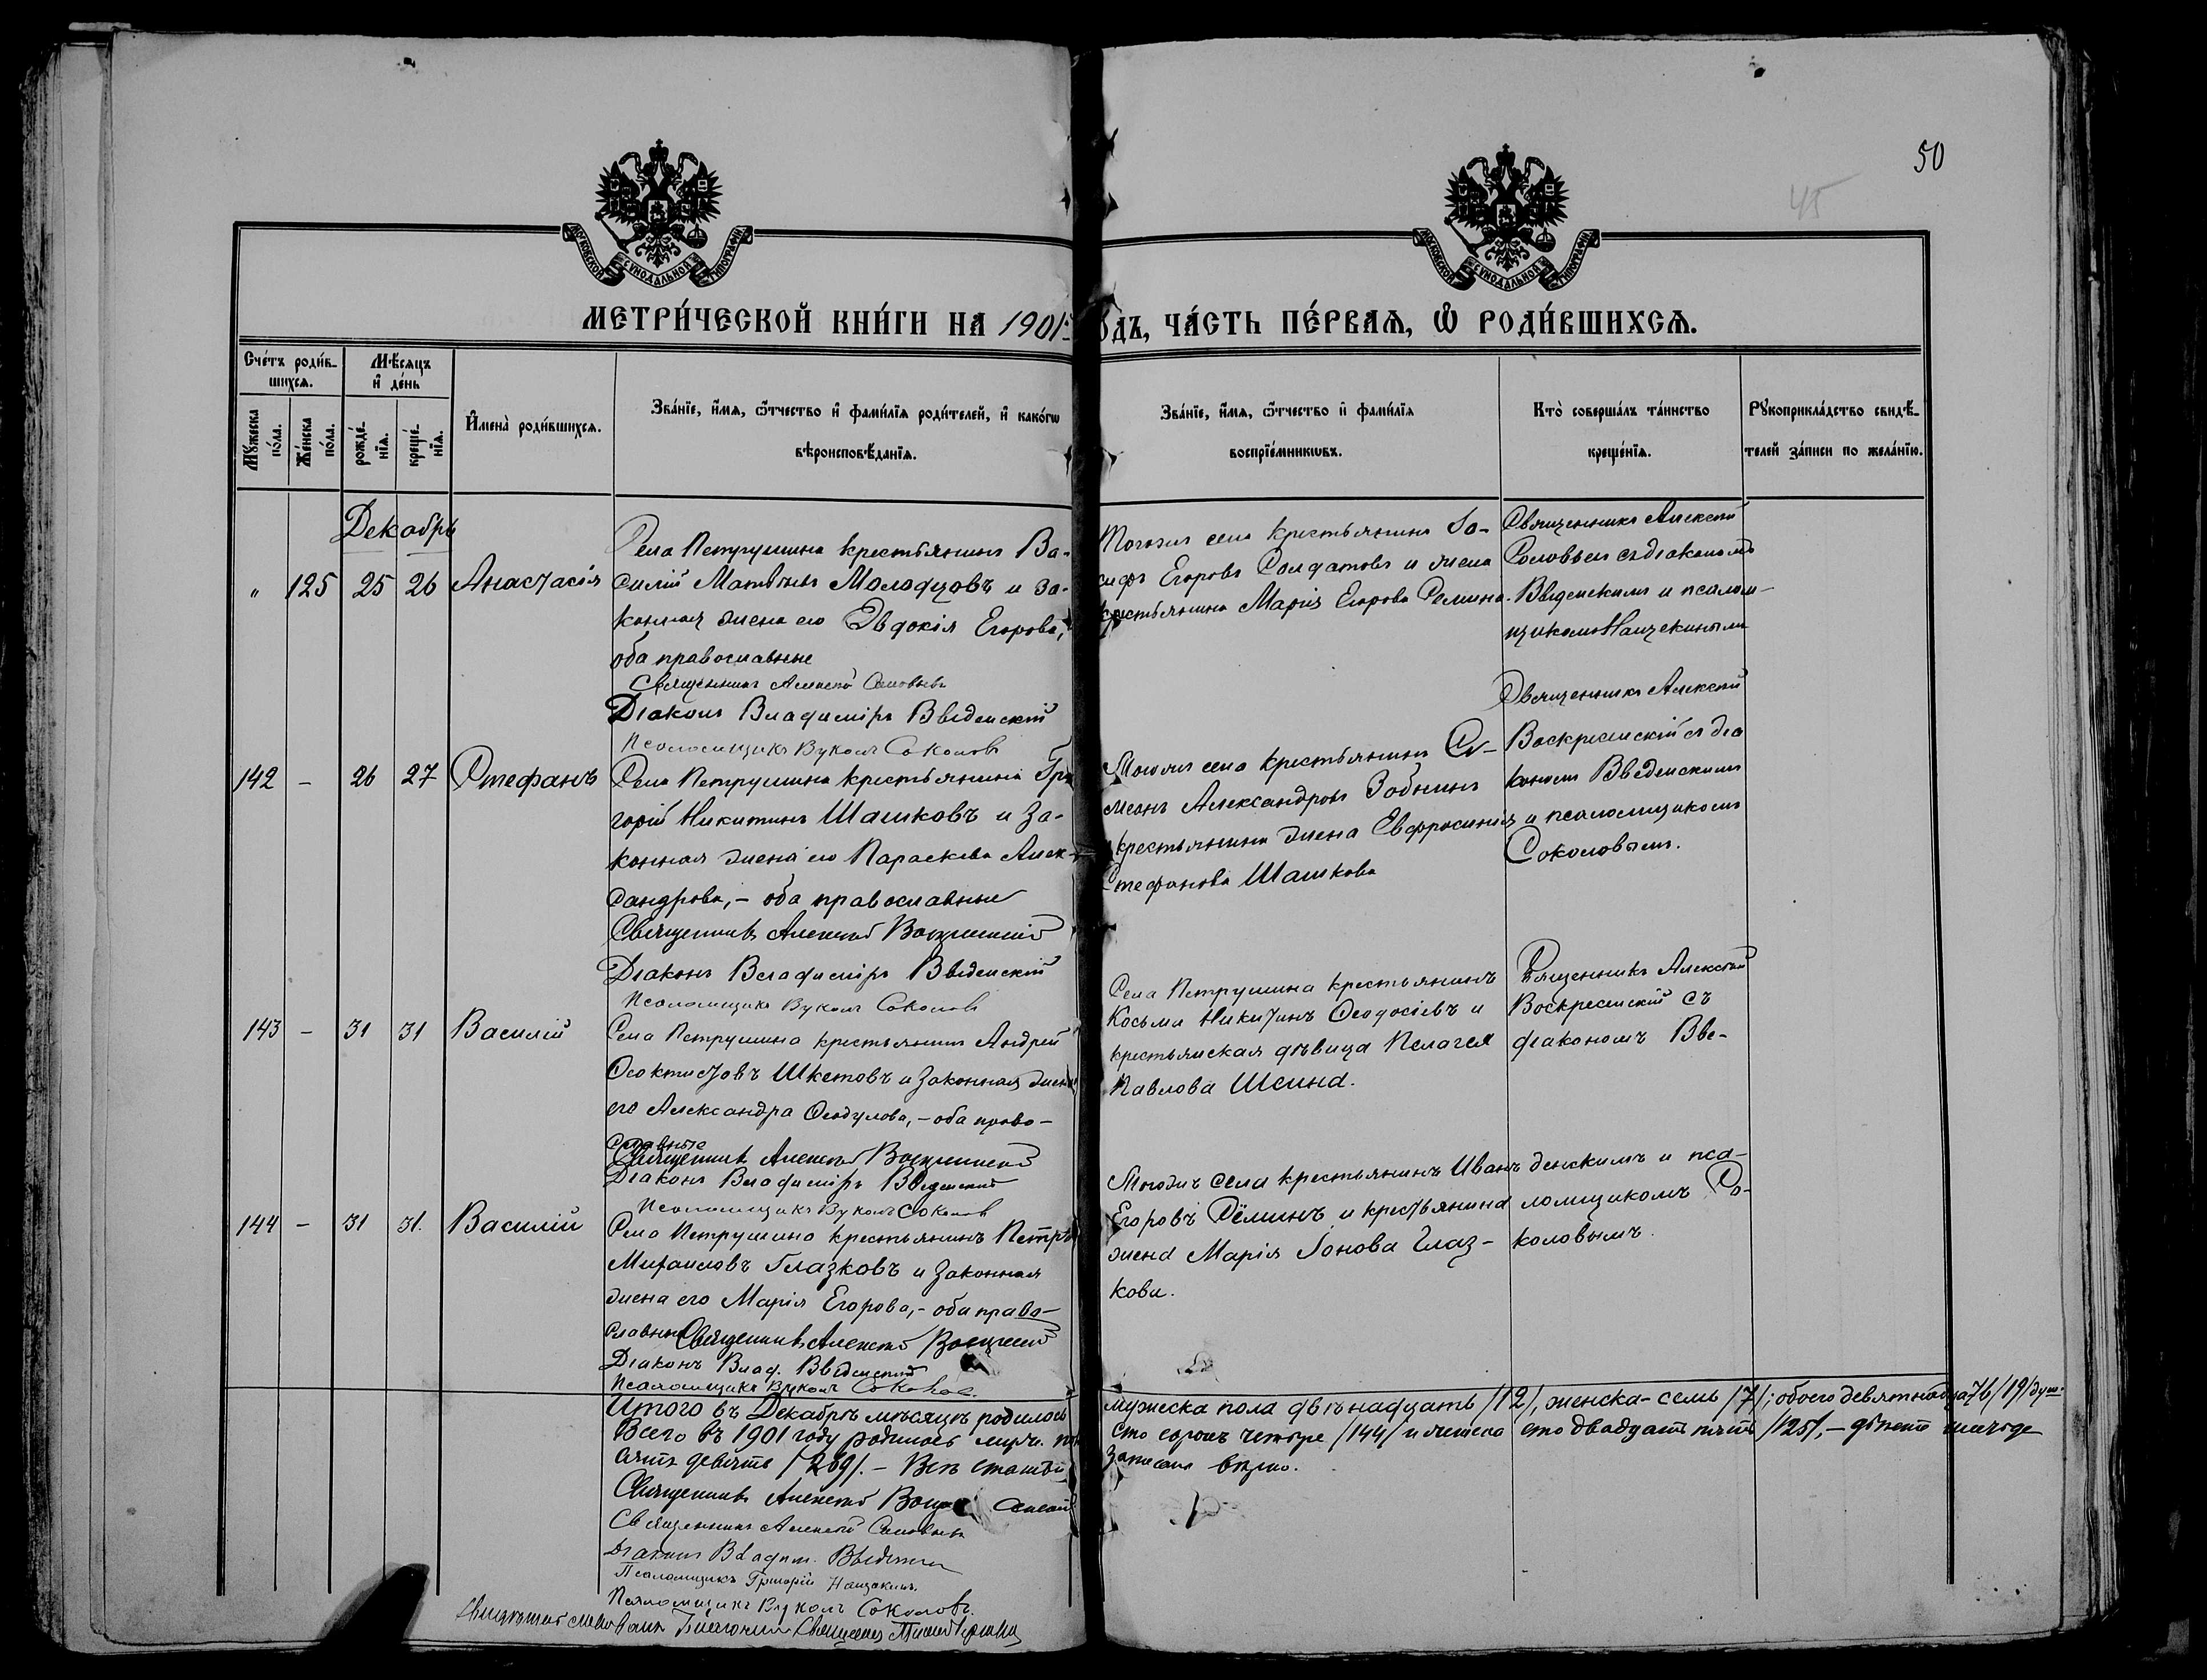 50
45
МОСКОВСКОЙ СѴНОДАЛЬНОЙ ТИПОГРАФІИ
МОСКОВСКОЙ СѴНОДАЛЬНОЙ ТИПОГРАФІИ
МЕТРИ́ЧЕСКОЙ КНИ́ГИ НА 1901 ГОДЪ, ЧА́СТЬ ПЕ́РВАѦ, Ѽ РОДИ́ВШИХСѦ.
Сче́тъ роди́в-
шихсѧ.
Мѣ́сѧцъ
и҆ де́нь
Мꙋ́жеска по́ла.
Же́нска по́ла.
рожде́-нїѧ.
креще́-нїѧ.
И҆мена̀ роди́вшихсѧ.
Зва́нїе, и҆́мѧ, ѻ҆́тчество и҆ фами́лїѧ роди́телей, и҆ како́гѡ
вѣроисповѣ́данїѧ.
Зва́нїе, и҆́мѧ, ѻ҆́тчество и҆ фами́лїѧ
воспрїе́мникѡвъ.
Кто̀ соверша́лъ та́инство
креще́нїѧ.
Рꙋкоприкла́дство свидѣ́-
телей за́писи по жела́нїю.
Декабрь
" 125 25 26 Анастасія
Села Петрушина крестьянинъ Ва-
силій Матвѣевъ Молодцовъ и за-
конная жена его Евдокія Егорова,
оба православные
Священникъ Алексѣй Соловьевъ
Діаконъ Владиміръ Введенскій
Псаломщикъ Вуколъ Соколовъ
Тогожъ села крестьянинъ Іо-
сифъ Егоровъ Солдатовъ и жена
крестьянина Марія Егорова Семина.
Священникъ Алексѣй
Соловьевъ съ діакономъ
Введенскимъ и псалом-
щикомъ Нащекинымъ
142 – 26 27 Стефанъ
Села Петрушина крестьянинъ Гри-
горій Никитинъ Шашковъ и за-
конная жена его Параскева Алек-
сандрова, – оба православные
Священникъ Алексѣй Воскресенскій
Діаконъ Владиміръ Введенскій
Псаломщикъ Вуколъ Соколовъ
Тогожъ села крестьянинъ Си-
меонъ Александровъ Зобнинъ
крестьянина жена Евфросинія
Стефанова Шашкова
Священникъ Алексѣй
Воскресенскій съ діа
кономъ Введенскимъ
и псаломщикомъ
Соколовымъ.
143 – 31 31 Василій
Села Петрушина крестьянинъ Андрей
Ѳеоктистовъ Шкетовъ и законная жена
его Александра Ѳеодулова, – оба право-
славные
Священникъ Алексѣй Воскресенскій
Діаконъ Владиміръ Введенскій
Псаломщикъ Вуколъ Соколовъ
Села Петрушина крестьянинъ
Косьма Никитинъ Ѳеодосіевъ и
крестьянская дѣвица Пелагея
Павлова Шеина.
Священникъ Алексѣй
Воскресенскій съ
діакономъ Вве-
144 – 31 31. Василій
Села Петрушина крестьянинъ Петръ
Михаиловъ Глазковъ и законная
жена его Марія Егорова, – оба право-
славные Священникъ Алексѣй Воскресенскій
Діаконъ Влад. Введенскій
Псаломщикъ Вуколъ Соколовъ.
Тогожъ села крестьянинъ Иванъ
Егоровъ Сёминъ и крестьянина
жена Марія Іонова Глаз-
кова.
денскимъ и пса-
ломщикомъ Со-
коловымъ.
Итого въ Декабрѣ мѣсяцѣ родилось мужеска пола двѣнадцать /12/, женска – семь /7/; обоего девятнадцать /19/ душ.
Всего въ 1901 году родилось муж. сто сорокъ четыре /144/ и женска сто двадцать пять /125/, –
девять /269/. – записано вѣрно.
Священникъ Алексѣй
Священникъ Алексѣй Соловьевъ
Діаконъ Владим. Введенскій
Псаломщикъ Григорій Нащекинъ.
Псаломщикъ Вуколъ Соколовъ.